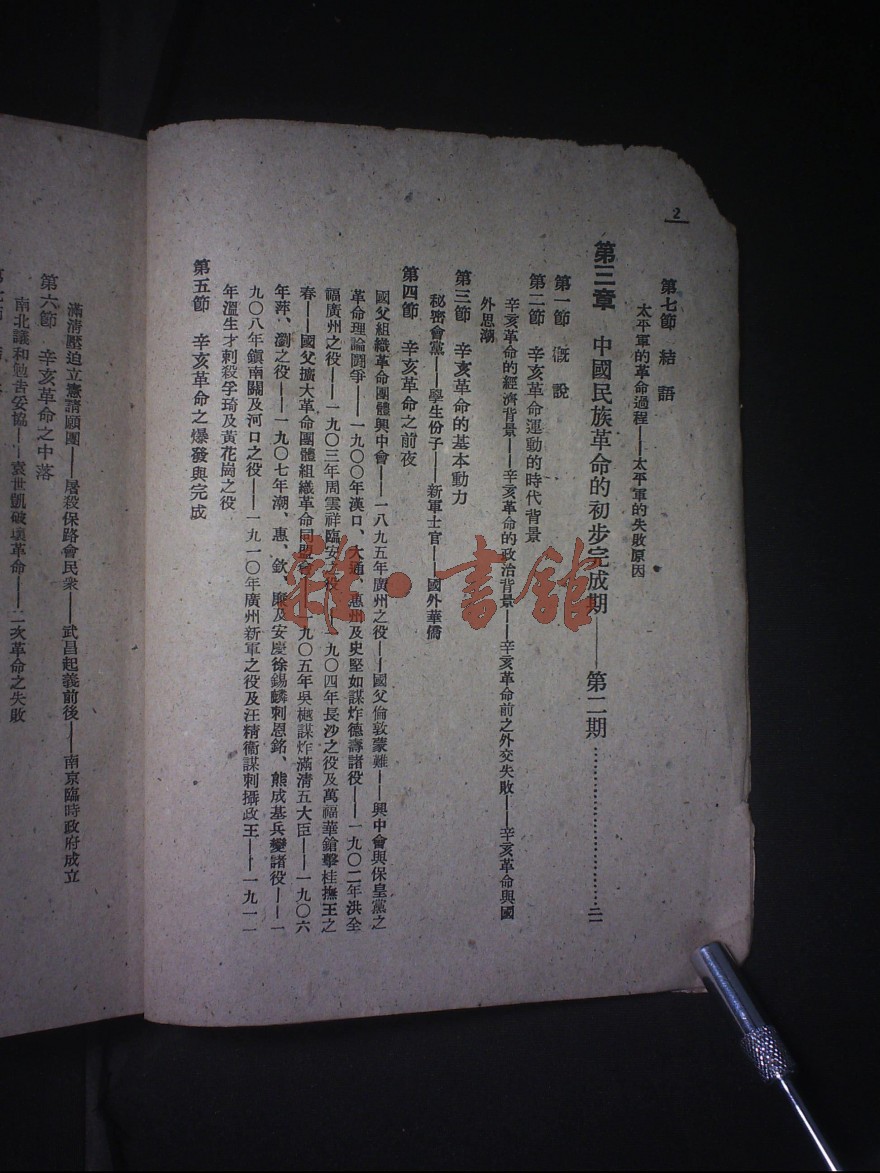 2
第七節 結語
太平軍的革命過程——太平軍的失敗原因
第三章 中國民族革命的初步完成期——第二期…………………二一
第一節 概說
第二節 辛亥革命運動的時代背景
辛亥革命的經濟背景——辛亥革命的政治背景——辛亥革命前之外交失敗——辛亥革命與國
外思潮
第三節 辛亥革命的基本動力
秘密會黨——學生份子——新軍士官——國外華僑
第四節 辛亥革命之前夜
國父組織革命團體興中會——一八九五年廣州之役——國父倫敦蒙難——興中會與保皇黨之
革命理論鬪爭——一九〇〇年漢口、大通、惠州及史堅如謀炸德壽諸役——一九〇二年洪全
福廣州之役——一九〇三年周雲祥臨安之役——一九〇四年長沙之役及萬福華鎗擊桂撫王之
春——國父擴大革命團體組織革命同盟會——一九〇五年吳樾謀炸滿清五大臣——一九〇六
年萍、瀏之役——一九〇七年潮、惠、欽、廉及安慶徐錫麟刺恩銘、熊成基兵變諸役——一
九〇八年鎮南關及河口之役——一九一〇年廣州新軍之役及汪精衞謀刺攝政王——一九一一
年溫生才刺殺孚琦及黃花崗之役
第五節 辛亥革命之爆發與完成
滿清壓迫立憲請願團——屠殺保路會民衆——武昌起義前後——南京臨時政府成立
第六節 辛亥革命之中落
南北議和勉告妥協——袁世凱破壞革命——二次革命之失敗
雜·書館